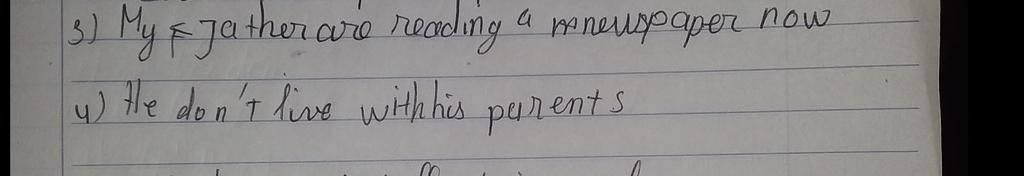 3) My father are reading a newspaper now
4) He don't live with his parents